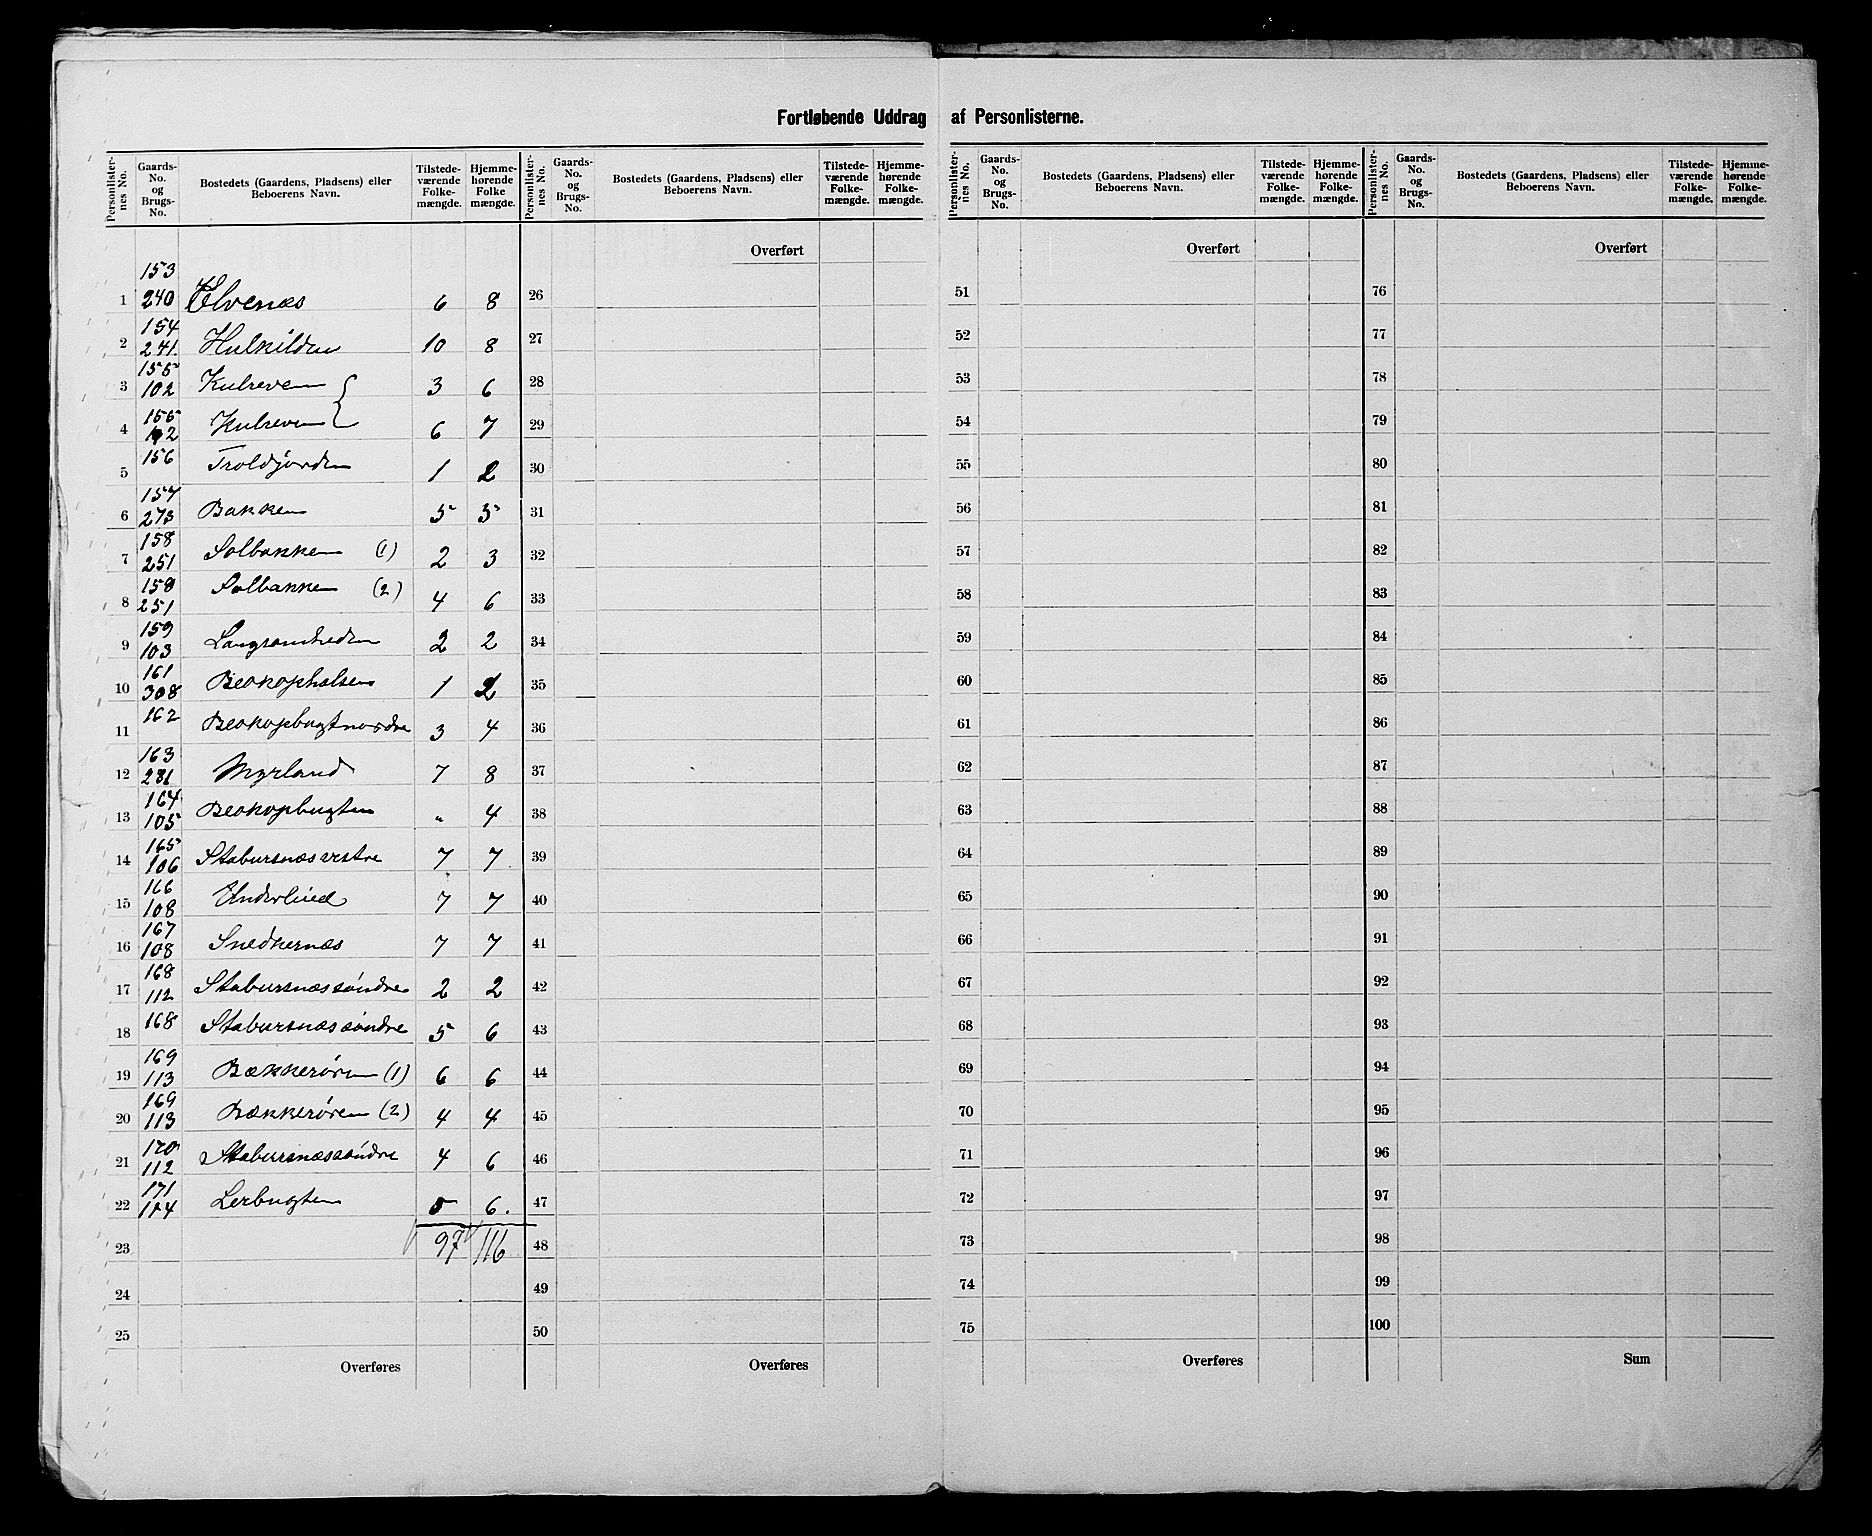 Fortløbende Uddrag af Personlisterne.
Personlister-nes No. | Gaards-No. og Brugs-No. | Bostedets (Gaardens, Pladsens) eller Beboerens Navn. | Tilstede-værende Folke-mængde. | Hjemme-hørende Folke mængde. | Personlister-nes No. | Gaards-No. og Brugs-No. | Bostedets (Gaardens, Pladsens) eller Beboerens Navn. | Tilstede-værende Folke-mængde. | Hjemme-hørende Folke-mængde. | Personlister-nes No. | Gaards-No. og Brugs-No. | Bostedets (Gaardens, Pladsens) eller Beboerens Navn. | Tilstede-værende Folke-mængde. | Hjemme-hørende Folke-mængde. | Personlister-nes No. | Gaards-No. og Brugs-No. | Bostedets (Gaardens, Pladsens) eller Beboerens Navn. | Tilstede-værende Folke-mængde. | Hjemme-hørende Folke-mængde.
Overført Overført Overført
1 153 240 Elvenæs 6 8 26 51 76
2 154 241. Hulkilden 10 8 27 52 77
3 155 102 Kulreven 3 6 28 53 78
4 155 102 Kulreven 6 7 29 54 79
5 156 Troldfjorden 1 2 30 55 80
6 157 273 Bakken 5 5 31 56 81
7 158 251 Solbakken (1) 2 3 32 57 82
8 158 251 Solbakken (2) 4 6 33 58 83
9 159 103 Langsomheden 2 2 34 59 84
10 161 308 Beokopholsen 1 2 35 60 85
11 162 Beokopbugtnordre 3 4 36 61 86
12 163 281 Myrland 7 8 37 62 87
13 164 105 Beokopbugten " 4 38 63 88
14 165 106 Stabursnæsvestre 7 7 39 64 89
15 166 108 Underlied 7 7 40 65 90
16 167 108 Snedkernæs 7 7 41 66 91
17 168 112 Stabursnæssøndre 2 2 42 67 92
18 168 Stabursnæssøndre 5 6 43 68 93
19 169 113 Bækkerøren (1) 6 6 44 69 94
20 169 113 Bækkerøren (2) 4 4 45 70 95
21 170 112 Stabursnæssøndre 4 6 46 71 96
22 171 114 Lerbugten 5 6. 47 72 97
23 97 116 48 73 98
24 49 74 99
25 50 75 100
Overføres Overføres Overføres Sum